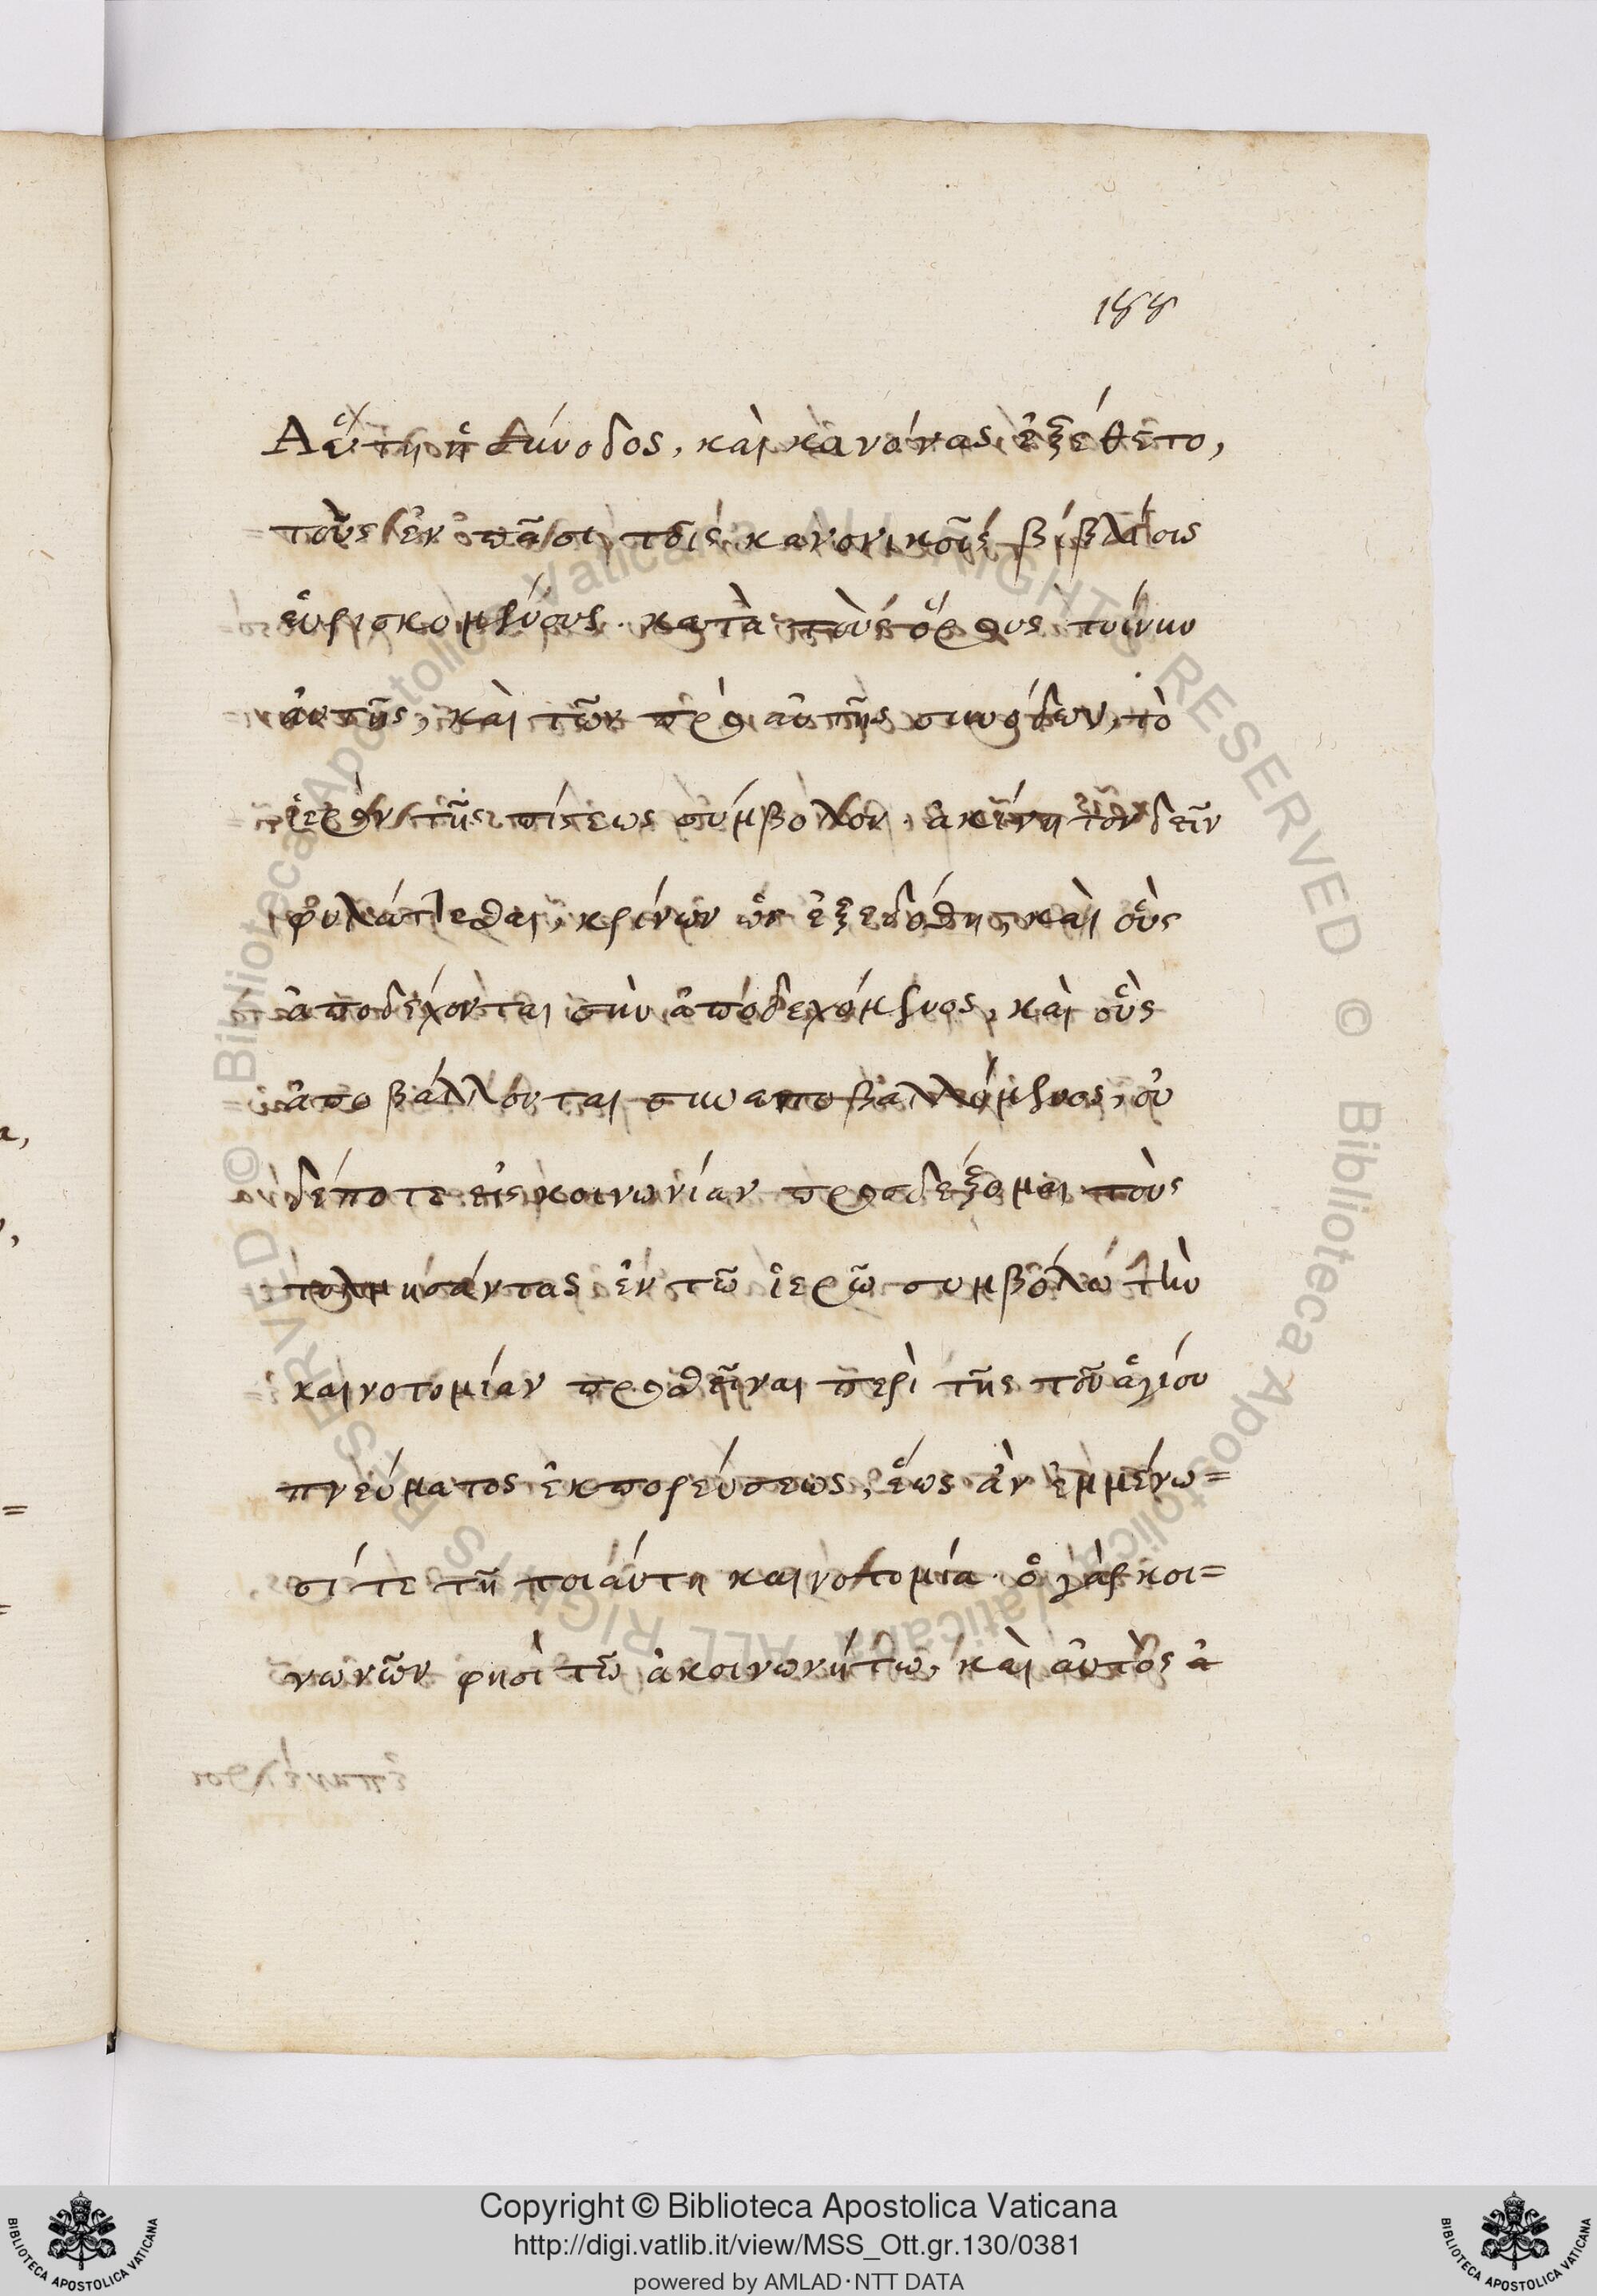 188
Αὕτη ἡ σύνοδος, καὶ κανόνας ἐξέθετο,
τοὺς ἐν πᾶσι τοῖς κανονικοῖς βίβλίοις
εὑρισκομένους. κατὰ τοὺς ὅρους τοίνυν
αὐτῆς, καὶ τῶν πρὸ αὐτῆς συνόδων, τὸ
ἱερὸν τῆς πίστεως σύμβολον, ἀκίνητον δεῖν
φυλάττεσθαι, κρίνων ὡς ἐξεδόθη, καὶ οὓς
ἀποδέχονται συναποδεχόμενος, καὶ οὓς
ἀποβάλλονται συναποβαλλόμενος, οὐ
δέποτε εἰς κοινωνίαν προσδέξομαι τοὺς
τολμήσάντας ἐν τῶ ἱερῶ συμβόλω τὴν
καινοτομίαν προσθεῖναι περὶ τῆς τοῦ ἁγίου
πνεύματος ἐκπορεύσεως, ἕως ἀν ἐμμένω=
σί τε τῆ τοιάυτη καινοτομία. ὁ γὰρ κοι=
νωνῶν φησὶ τῶ ἀκοινωνήτω, καὶ αὐτὸς ἀ
Copyright © Biblioteca Apostolica Vaticana
http://digi.vatlib.it/view/MSS_Ott.gr.130/0381
powered by AMLAD·NTT DATA
BIBLIOTECA APOSTOLICA VATICANA
BIBLIOTECA APOSTOLICA VATICANA
© Biblioteca Apostolica Vaticana ALL RIGHTS RESERVED
© Biblioteca Apostolica Vaticana ALL RIGHTS RESERVED